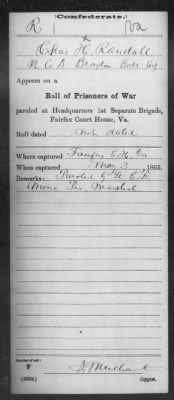 (Confederate.)
R Va
Chas H. Randall
Appears on a
Roll of Prisoners of War
paroled at Headquarters 1st Separate Brigade,
Fairfax Court House, Va.
Roll dated not dated
Where captured Fairfax C.H. Va
When captured May 3, 1865.
Remarks: Paroled by
Marshal
Number of roll:
7
Copyist.